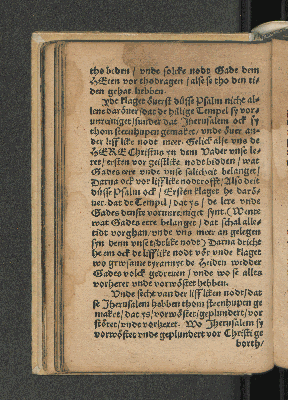 tho biden / vnde solcke nodt Gade dem
HEren vor thodragen / alse se tho den ti-
den gehat hebben.
Ydt klaget öuerst düsse Psalm nicht al-
lene daröuer / dat de hillige Tempel sy vor-
unreiniget / sunder dat Jherusalem ock sy
thom steenhupen gemaket / vnde öuer an-
der lifflike nodt meer. Gelick alse vns de
HERE Christus yn dem Vader vnse le-
ret / ersten vor geistlike nodt bidden / wat
Gades ere vnde vnse salicheit belanget /
Darna ock vor lifflike nodtrofft / Also deit
düsse Psalm ock / Ersten klaget he darö-
uer, dat de Tempel / dat ys / de lere vnde
Gades denst vorunreiniget synt. Wente
wat Gades ere belanget / dat schal alle-
tidt vorghan / vnde vns meer an gelegen
syn denn vnse lifflike nodt) Darna bricht
he em ock de lifflike nodt vör vnde klaget
wo grwsame tyrannye de Heiden wedder
Gades volck gedreuen / vnde wo se alles
vorheret vnde vorwöstet hebben.
Vnde secht van der liffliken nodt / dat
se Jherusalem hebben thom steenhupen ge
maket / dat ys / vorwöstet / geplundert / vor
störet / vnde vorheret. Wo Jherusalem sy
vorwöstet vnde geplundert vor Christi ge
borth /